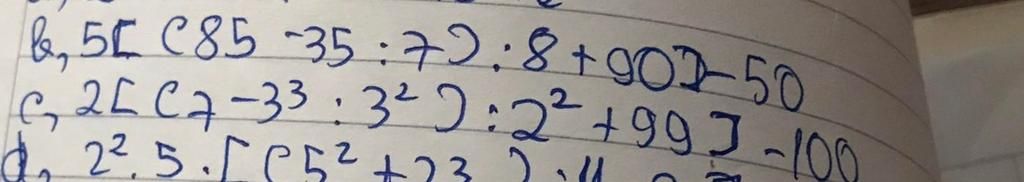 b, 5[ (85 - 35 : 7) : 8 + 90] - 50
c, 2[ (7 - 3³ : 3²) : 2² + 99] - 100
d, 2² . 5 . [ (5² + 23 ) :